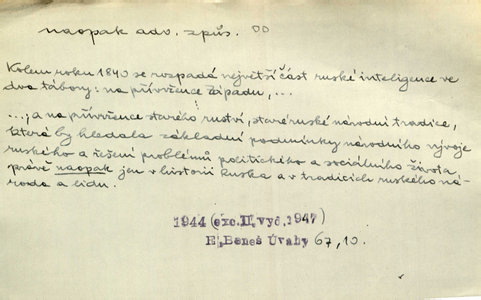 naopak adv. způs. DD
Kolem roku 1840 se rozpadá největší část ruské inteligence ve
dva tábory: na přívržence západu, ...
...; a na přívržence starého ruství, staré ruské národní tradice,
která by hledala základní podmínky národního vývoje
ruského a řešení problémů politického a sociálního života
právě naopak jen v historii Ruska a v tradicích ruského ná-
roda a lidu.
1944 (exc. II. vyd. 1947)
E. Beneš Úvahy 67, 10.